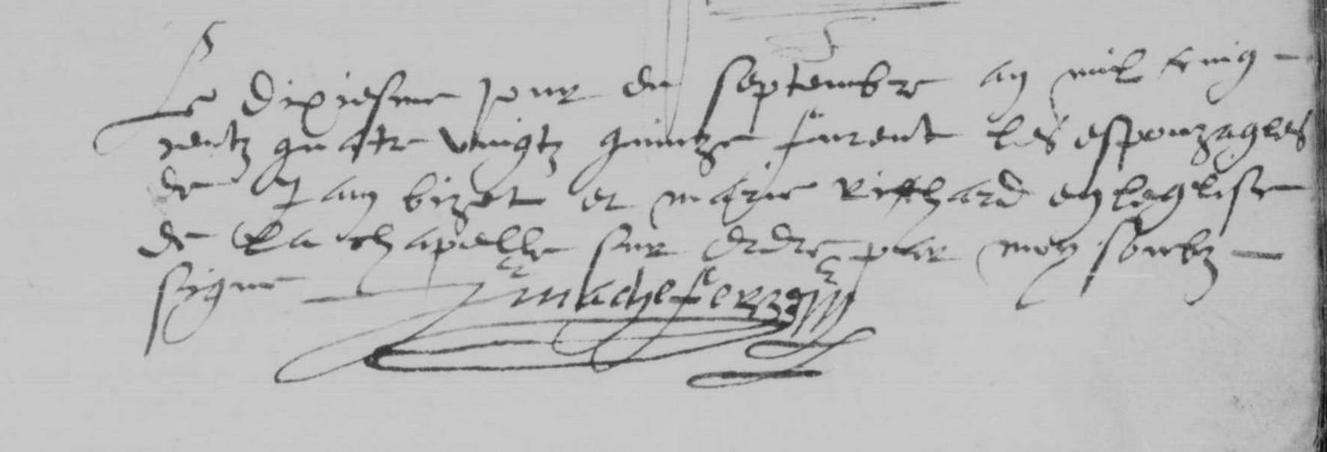 Le dixiesme jour de septembre an mil cinq
centz quatre vingtz quinze furent les espouzagles
de Jan bizet et marie Richard en leglise
de La chapelle sur erdre par moy soubz
signe macheferz